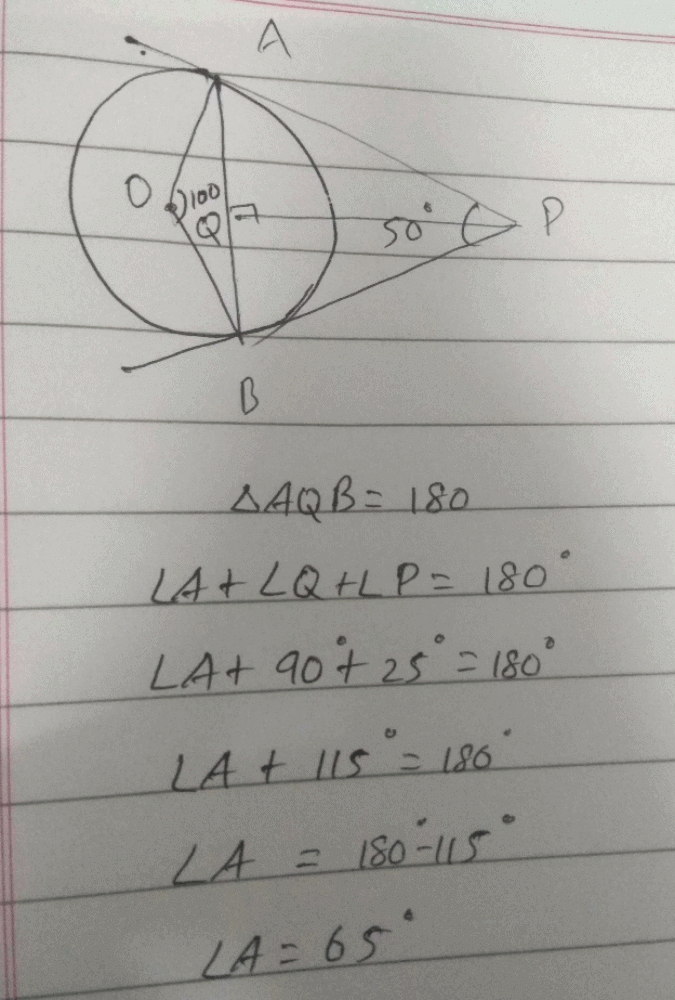 A
O
100
Q
50°
P
B
△AQB = 180
∠A + ∠Q + ∠P = 180°
∠A + 90° + 25° = 180°
∠A + 115° = 180°
∠A = 180° - 115°
∠A = 65°